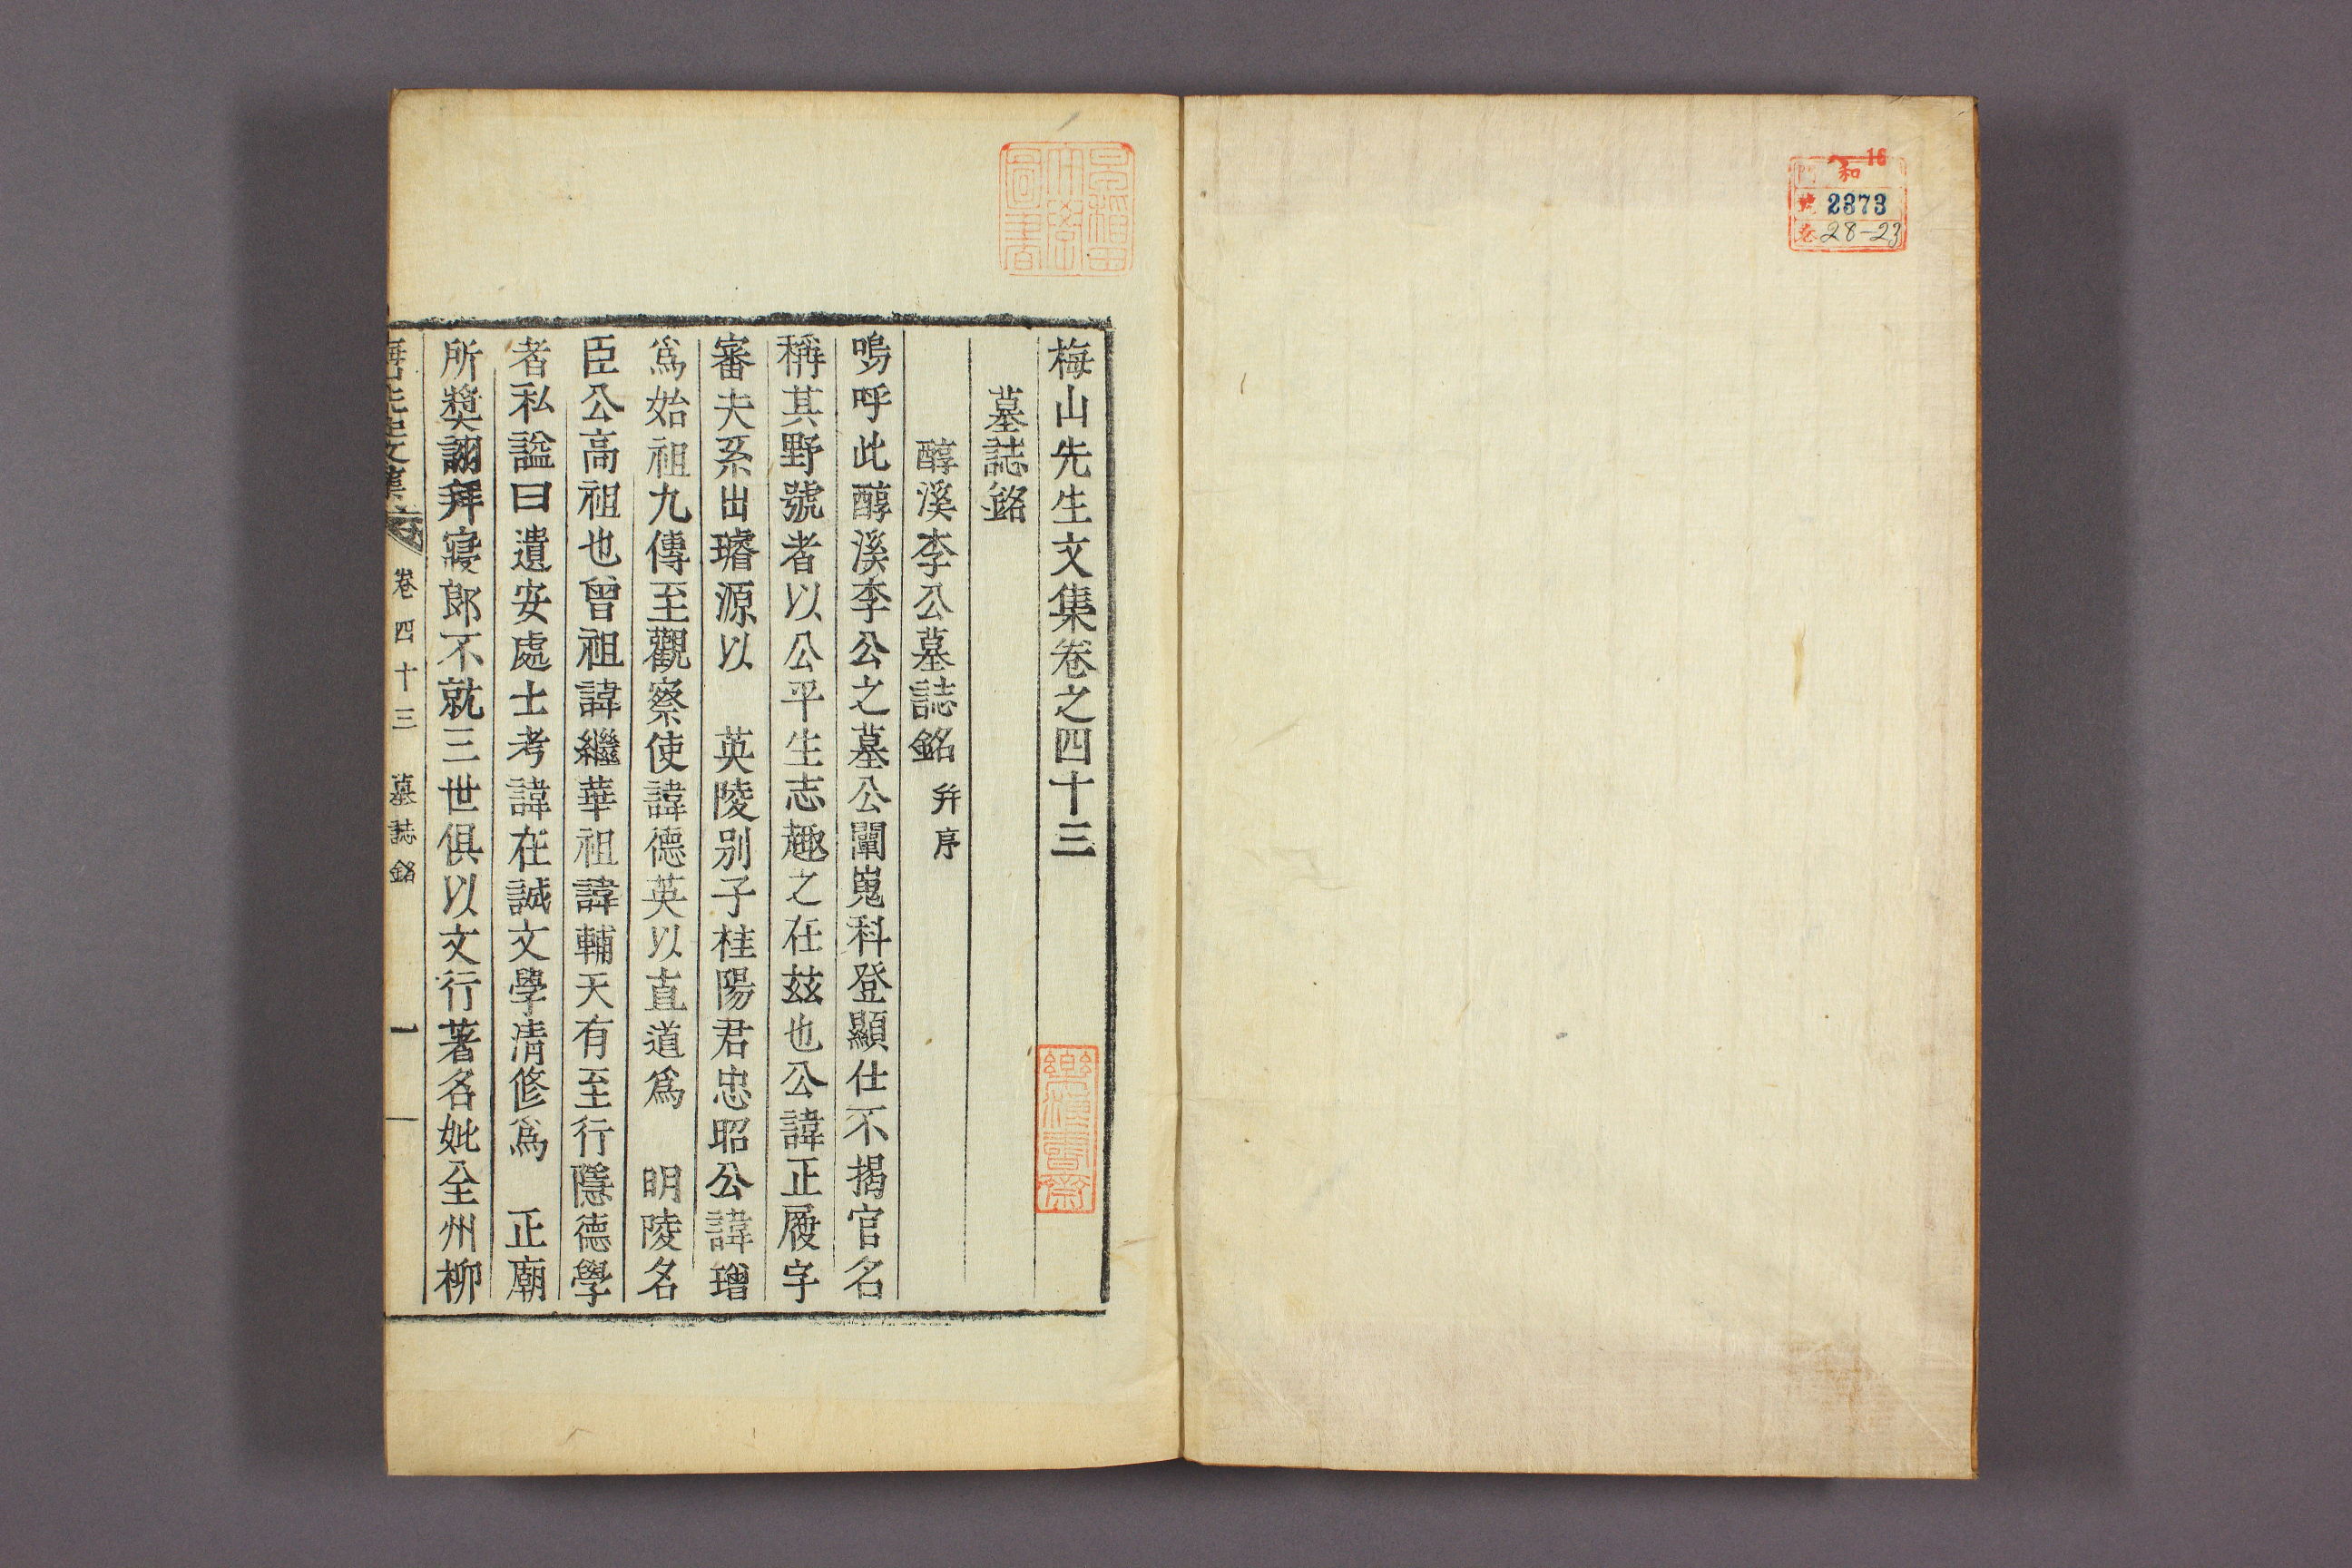 16
和
門
號 2373
卷 28-23
早稲田大學圖書
梅山先生文集卷之四十三
墓誌銘
醇溪李公墓誌銘 幷序
嗚呼此醇溪李公之墓公闡嵬科登顯仕不揭官名
稱其野號者以公平生志趣之在玆也公諱正履字
審夫系出璿源以 英陵別子桂陽君忠昭公諱璔
爲始祖九傳至觀察使諱德英以直道爲 明陵名
臣公高祖也曾祖諱繼華祖諱輔天有至行隱德學
者私諡曰遺安處士考諱在誠文學淸修爲 正廟
所奬詡拜寢郞不就三世俱以文行著名妣全州柳
梅山先生文集 卷四十三 墓誌銘 一